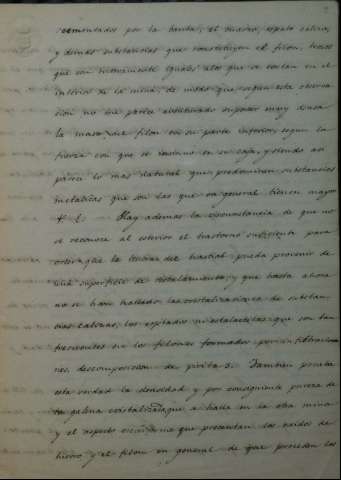 cementados por la barita, el cuarzo, espato calizo,
y demas substancias que constituyen el filon, trozos
que son enteramente iguales a los que se hallan en el
interior de la mina; de modo que segun esta observa
cion no me parece aventurado suponer muy densa
la masa del filon en su parte inferior, segun la
fuerza con que se insinua en su caja, y siendo asi
parece lo mas natural que predominen substancias
metalicas que son las que en general tienen mayor
Hay ademas la circunstancia de que no
se reconoce al exterior el trastorno suficiente para
que la pueda provenir de
una superficie de resbalamiento, y que hasta ahora
no se han hallado las cristalizaciones de substan
cias calizas, los ni estalactitas que son tan
frecuentes en los filones formados por infiltracio
nes, descomposicion de pirita &. Tambien prueba
esta verdad la densidad y por consiguiente pureza de
la galena cristalizada que se halla en la otra mina
y el aspecto que presentan los oxidos de
hierro, y el filon en general de que proceden los